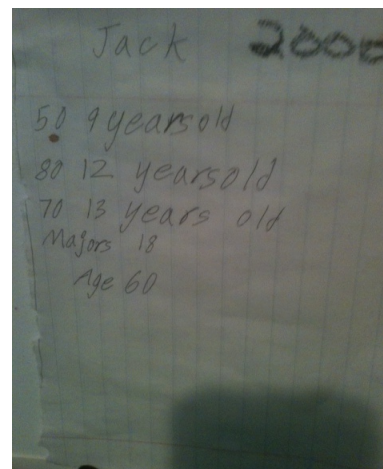 Jack 2000
50 9 years old
80 12 years old
70 13 years old
Majors 18
Age 60